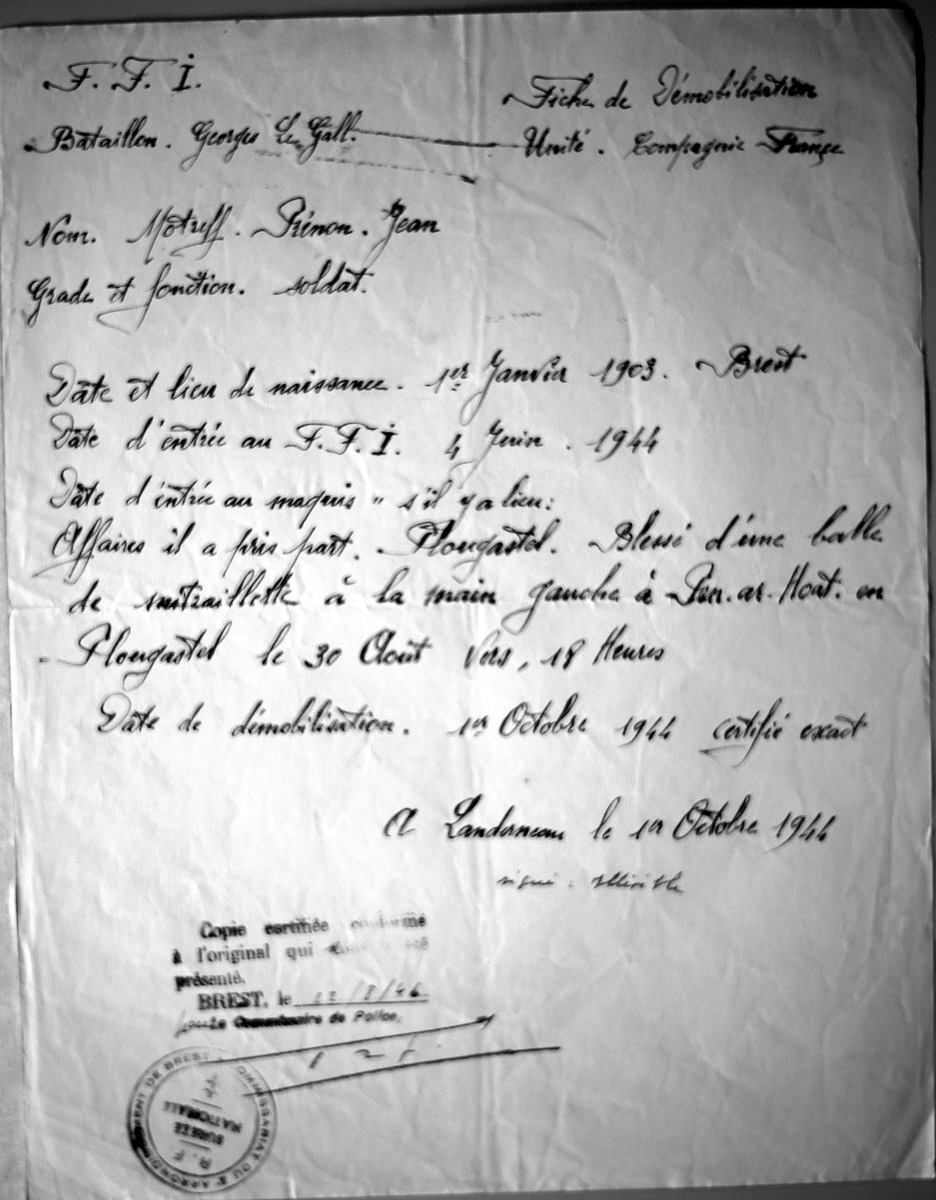 F. F. I. Fiche de Démobilisation
Bataillon. Georges Le Gall. Unité. Compagnie France
Nom. Motreff. Prénon. Jean
Grade et fonction. soldat.
Date et lieu de naissance. 1er Janvier 1903. Brest
Date d'entrée au F.F.I. 4 Juin. 1944
Date d'entrée au maquis " s'il y a lieu:
Affaires il a pris part. Plougastel. Blessé d'une balle
de mitraillette à la main gauche à Pen.ar.Hoat. en
Plougastel le 30 Août Vers, 18 Heures
Date de démobilisation. 1er Octobre 1944 certifié exact
A Landerneau le 1er Octobre 1944
signé : illisible
Copie certifiée conforme
à l'original qui
présenté.
BREST, le 12/8/46
pour Le Commissaire de Police,
COMMISSARIAT DU 2e ARRONDISSEMENT DE BREST
R.F.
SURETÉ
NATIONALE